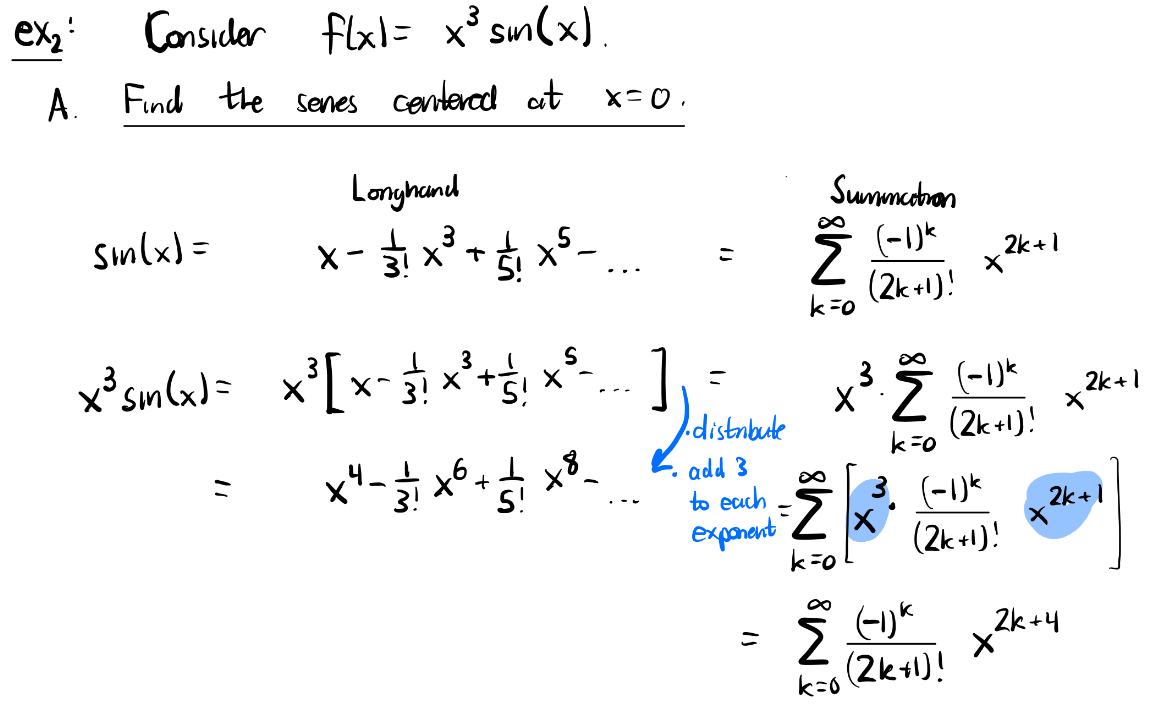 ex₂: Consider f(x) = x³ sin(x).
A. Find the series centered at x=0.
Longhand Summation
sin(x) = x - 1/3! x³ + 1/5! x⁵ - ... = ∑_{k=0}^{∞} (-1)^k/(2k+1)! x^{2k+1}
x³ sin(x) = x³ [x - 1/3! x³ + 1/5! x⁵ - ...] = x³ · ∑_{k=0}^{∞} (-1)^k/(2k+1)! x^{2k+1}
· distribute
· add 3
to each
exponent
= x⁴ - 1/3! x⁶ + 1/5! x⁸ - ... = ∑_{k=0}^{∞} [x³ · (-1)^k/(2k+1)! x^{2k+1}]
= ∑_{k=0}^{∞} (-1)^k/(2k+1)! x^{2k+4}